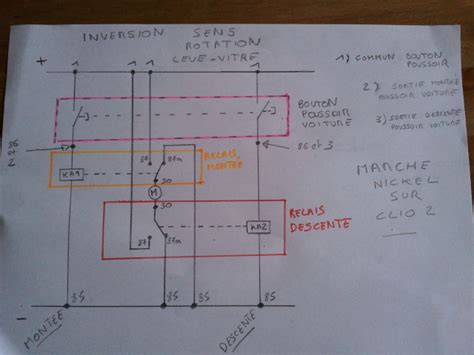 INVERSION SENS
ROTATION
LEVE-VITRE
1) COMMUN BOUTON
POUSSOIR
2) SORTIE MONTEE
POUSSOIR VOITURE
3) SORTIE DESCENTE
POUSSOIR VOITURE
+ 1 1 1 1
BOUTON
POUSSOIR
VOITURE
86 et 3
86 87a
RELAIS
MONTEE
KA1
30
M
30
RELAIS
DESCENTE
KA2
87 87a
MARCHE
NICKEL
SUR
CLIO 2
- 85 85 85 85
MONTEE
DESCENTE